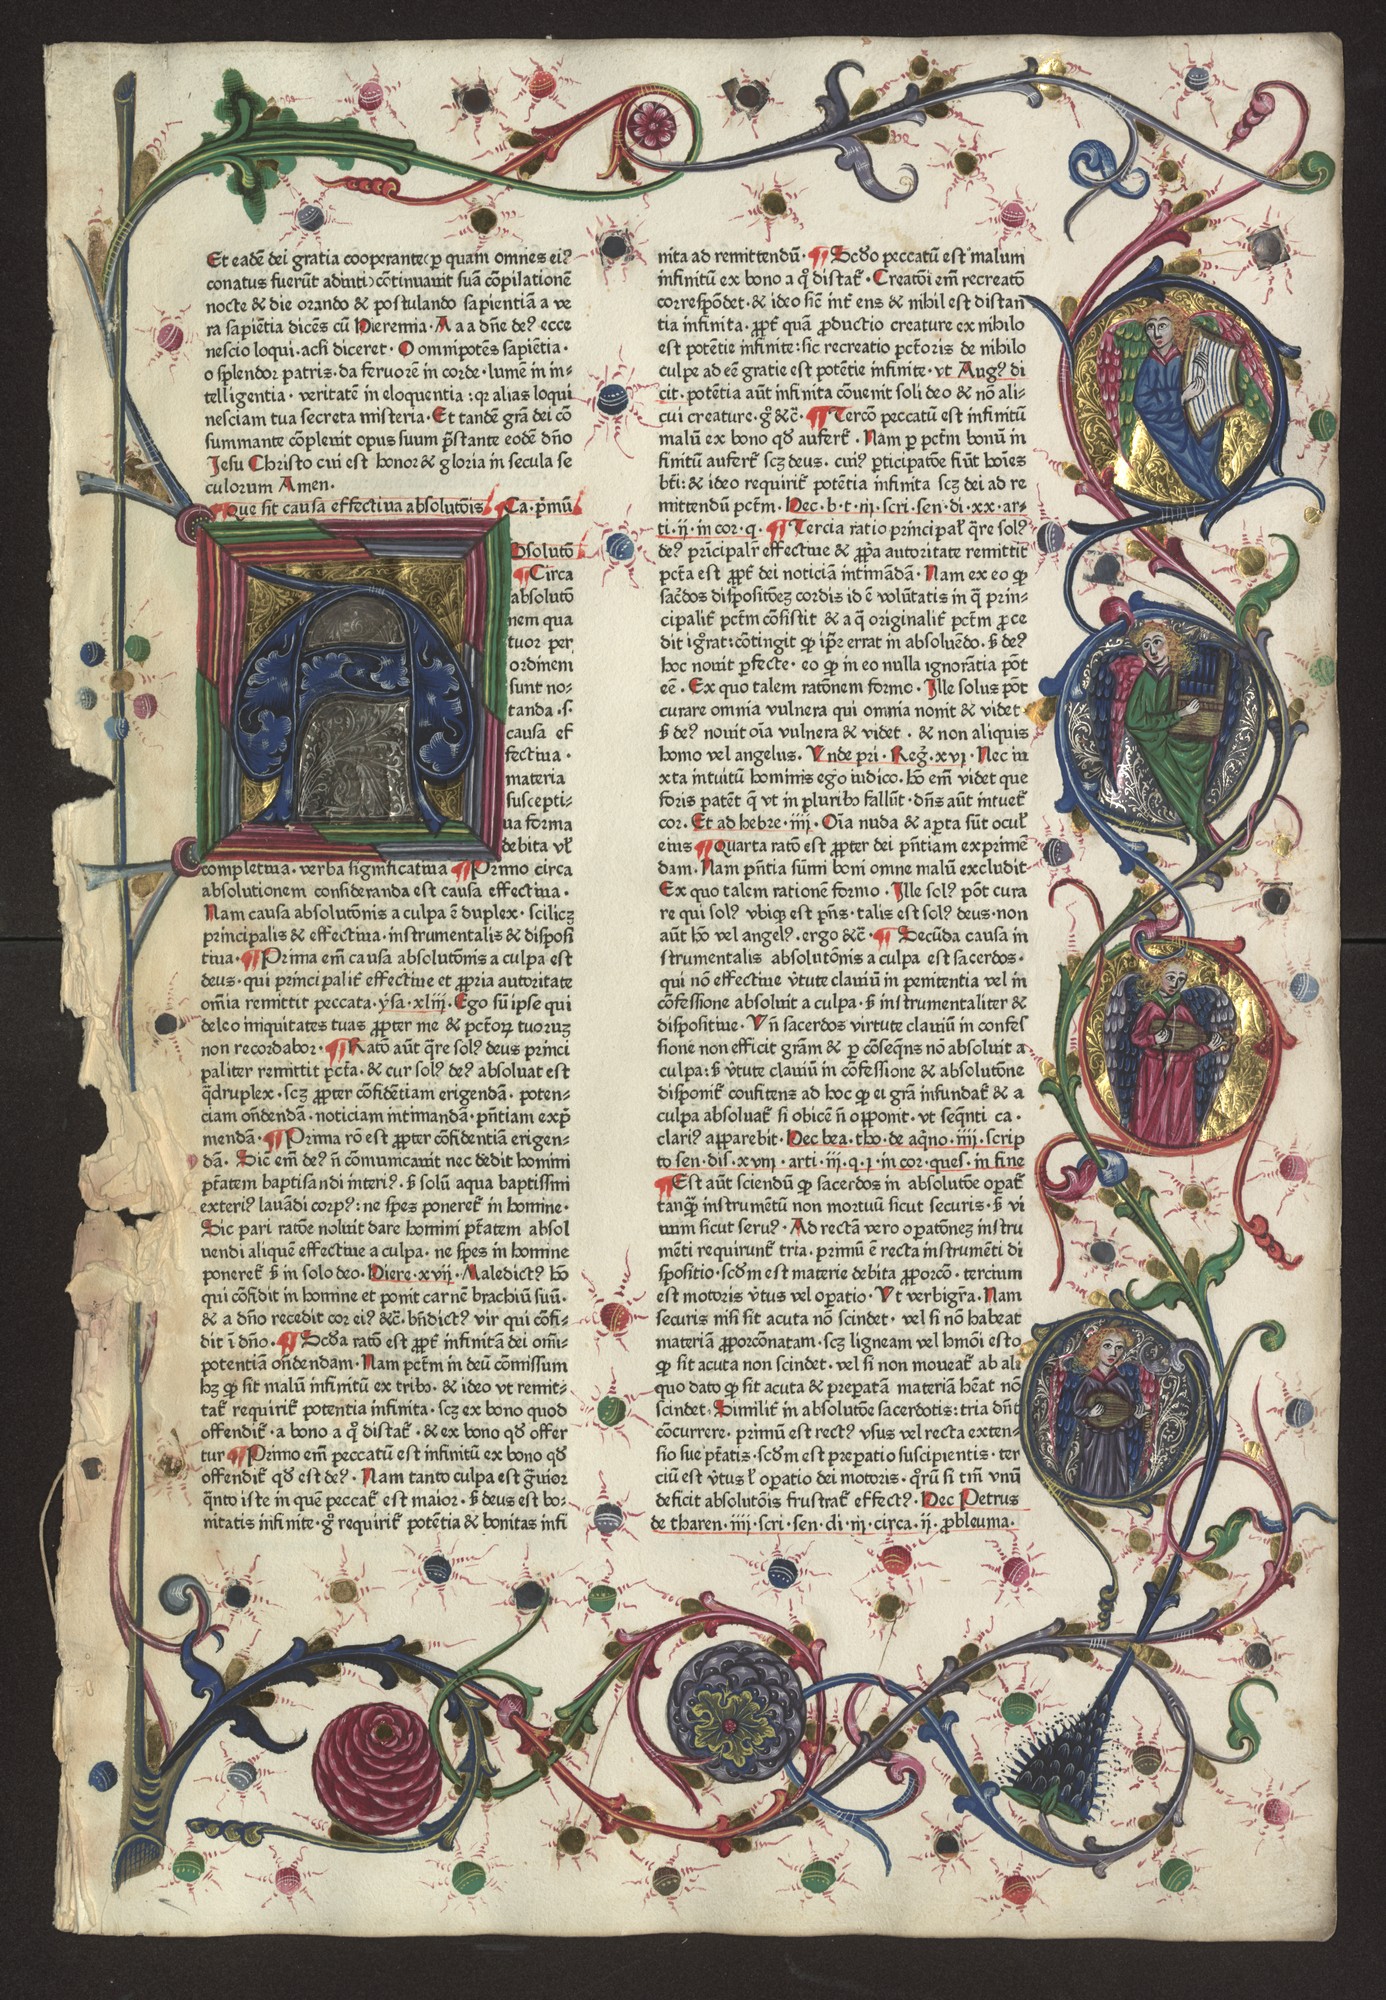 Et eadē dei gratia cooperante ꝑ quam omnes eiꝰ
conatus fuerūt adiuti ↄtinuauit suā cōpilationē
nocte & die orando & postulando sapientiā a ve
ra sapiētia dicēs cū Hieremia · A a a dn̄e deꝰ ecce
nescio loqui · acsi diceret · O omnipotēs sapiētia ·
o splendor patris · da feruorē in corde · lumē in in⸗
telligentia · veritatē in eloquentia : qꝛ alias loqui
nesciam tua secreta misteria · Et tandē grā dei cō
summante cōpleuit opus suum p̄stante eodē dn̄o
Jesu Christo cui est honor & gloria in secula se
culorum Amen ·
¶ Que sit causa effectiua absolutōis ¶ Ca · pͥmū
Absolutō
¶ Circa
absolutō
nem qua
tuor per
ordinem
sunt no⸗
tanda · s·
causa ef
fectiua ·
materia
suscepti⸗
ua forma
debita vl̄
completiua · verba significatiua ¶ Primo circa
absolutionem consideranda est causa effectiua ·
Nam causa absolutōnis a culpa ē duplex · scilicꝫ
principalis & effectiua · instrumentalis & disposi
tiua · ¶ Prima em̄ causa absolutōnis a culpa est
deus · qui principalit᷑ effectiue et ꝓpria autoritate
om̄ia remittit peccata · ysa · xliij · Ego sū ipse qui
deleo iniquitates tuas ꝓpter me & pctōꝝ tuoruꝫ
non recordabor · ¶ Ratō aūt q̄re solꝰ deus princi
paliter remittit pctā · & cur solꝰ deꝰ absoluat est
q̄druplex · scꝫ ꝓpter cōfidētiam erigendā · poten⸗
ciam on̄dendā · noticiam intimandā · pn̄tiam exp̄
mendā · ¶ Prima rō est ꝓpter cōfidentiā erigen⸗
dā · Sic em̄ deꝰ n̄ cōmunicauit nec dedit homini
pt̄atem baptisandi interiꝰ · s̄ solū aqua baptismi
exteriꝰ lauādi corpꝰ : ne spes poneret᷑ in homine ·
Sic pari ratōe noluit dare homini pt̄atem absol
uendi aliquē effectiue a culpa · ne spes in homine
poneret᷑ s̄ in solo deo · Hiere · xvij · Maledictꝰ hō
qui cōfidit in homine et ponit carnē brachiū suū ·
& a dn̄o recedit cor eiꝰ &c̄ · bn̄dictꝰ vir qui cōfi⸗
dit ī dn̄o · ¶ Scd̄a ratō est ꝓpt᷑ infinitā dei om̄i⸗
potentiā on̄dendam · Nam pctm̄ in deū cōmissum
hꝫ ꝙ sit malū infinitū ex tribꝰ · & ideo vt remit⸗
tat᷑ requirit᷑ potentia infinita · scꝫ ex bono quod
offendit᷑ · a bono a q̊ distat᷑ · & ex bono qd̄ offer
tur ¶ Primo em̄ peccatū est infinitū ex bono qd̄
offendit᷑ qd̄ est deꝰ · Nam tanto culpa est g̊uior
q̄nto iste in quē peccat᷑ est maior · s̄ deus est bo⸗
nitatis infinite · g̊ requirit᷑ potētia & bonitas infi
nita ad remittendū · ¶ Scd̄o peccatū est malum
infinitū ex bono a q̊ distat᷑ · Creatōi em̄ recreatō
correspōdet · & ideo sic̄ int᷑ ens & nihil est distan̄
tia infinita · ꝓpt᷑ quā ꝓductio creature ex nihilo
est potētie infinite : sic recreatio pctōris de nihilo
culpe ad eē gratie est potētie infinite · vt Augꝰ di
cit · potētia aūt infinita cōuenit soli deo & nō ali⸗
cui creature · g̊ &c̄ · ¶ Tercō peccatū est infinitū
malū ex bono qd̄ aufert᷑ · Nam ꝑ pctm̄ bonū in
finitū aufert᷑ scꝫ deus · cuiꝰ ꝑticipatōe fiūt hoīes
bt̄i : & ideo requirit᷑ potētia infinita scꝫ dei ad re
mittendū pctm̄ · Hec · b · t · iij · scri · sen · di · xx · ar⸗
ti · ij · in cor · q · ¶ Tercia ratio principal᷑ q̄re solꝰ
deꝰ pͥncipalr̄ effectiue & ꝓpa autoritate remittit
pctā est ꝓpt᷑ dei noticiā intimādā · Nam ex eo ꝙ
sac̄dos dispositōeꝫ cordis id ē volūtatis in q̄ prin⸗
cipalit᷑ pctm̄ cōsistit & a q̄ originalit᷑ pctm̄ ꝓce
dit ig̊rat : cōtingit ꝙ ip̄e errat in absoluēdo · s̄ deꝰ
hoc nouit ꝑfecte · eo ꝙ in eo nulla ignorātia pōt
eē · Ex quo talem ratōnem formo · Ille solus pōt
curare omnia vulnera qui omnia nouit & videt ·
s̄ deꝰ nouit oīa vulnera & videt · & non aliquis
homo vel angelus · Vnde pri · Reg̃ · xvi · Nec iu
xta intuitū hominis ego iudico · hō em̄ videt que
foris patēt q̄ vt in pluribꝰ fallūt · dn̄s aūt intuet᷑
cor · Et ad hebre · iiij · Oīa nuda & aꝑta sūt ocul᷑
eius ¶ Quarta ratō est ꝓpter dei pn̄tiam exprimē
dam · Nam pn̄tia sūmi boni omne malū excludit
Ex quo talem rationē formo · Ille solꝰ pōt cura
re qui solꝰ vbiqꝫ est pn̄s · talis est solꝰ deus · non
aūt hō vel angelꝰ · ergo &c̄ · ¶ Secūda causa in
strumentalis absolutōnis a culpa est sacerdos ·
qui nō effectiue v̓tute clauiū in penitentia vel in
cōfessione absoluit a culpa · s̄ instrumentaliter &
dispositiue · Vn̄ sacerdos virtute clauiū in confes
sione non efficit grām & ꝑ cōseq̄ns nō absoluit a
culpa : s̄ v̓tute clauiū in cōfessione & absolutōne
disponit᷑ confitens ad hoc ꝙ ei grā infundat᷑ & a
culpa absoluat᷑ si obicē n̄ opponit · vt seq̄nti ca ·
clariꝰ apparebit · Hec bea · tho · de aq̄no · iiij · scrip
to sen · dis · xviij · arti · iij · q · j · in cor · ques · in fine
¶ Est aūt sciendū ꝙ sacerdos in absolutōe oꝑat᷑
tanqꝫ instrumētū non mortuū sicut securis · s̄ vi
uum sicut seruꝰ · Ad rectā vero oꝑatōneꝫ instru
mēti requirunt᷑ tria · primū ē recta instrumēti di
spositio · scd̄m est materie debita ꝓporcō · tercium
est motoris v̓tus vel oꝑatio · Vt verbigr̄a · Nam
securis nisi sit acuta nō scindet · vel si nō habeat
materiā ꝓporcōnatam · scꝫ ligneam vel hm̄oi esto
ꝙ sit acuta non scindet · vel si non moueat᷑ ab ali
quo dato ꝙ sit acuta & preparata materiā hēat nō
scindet · Similit᷑ in absolutōe sacerdotis : tria dn̄t
cōcurrere · primū est rectꝰ vsus vel recta exten⸗
sio sue pt̄atis · scd̄m est prepatio suscipientis · ter
ciū est v̓tus l᷑ oꝑatio dei motoris · q̊rū si tm̄ vnū
deficit absolutōis frustrat᷑ effectꝰ · Hec Petrus
de tharen · iiij · scri · sen · di · iij · circa · ij · ꝓbleuma ·